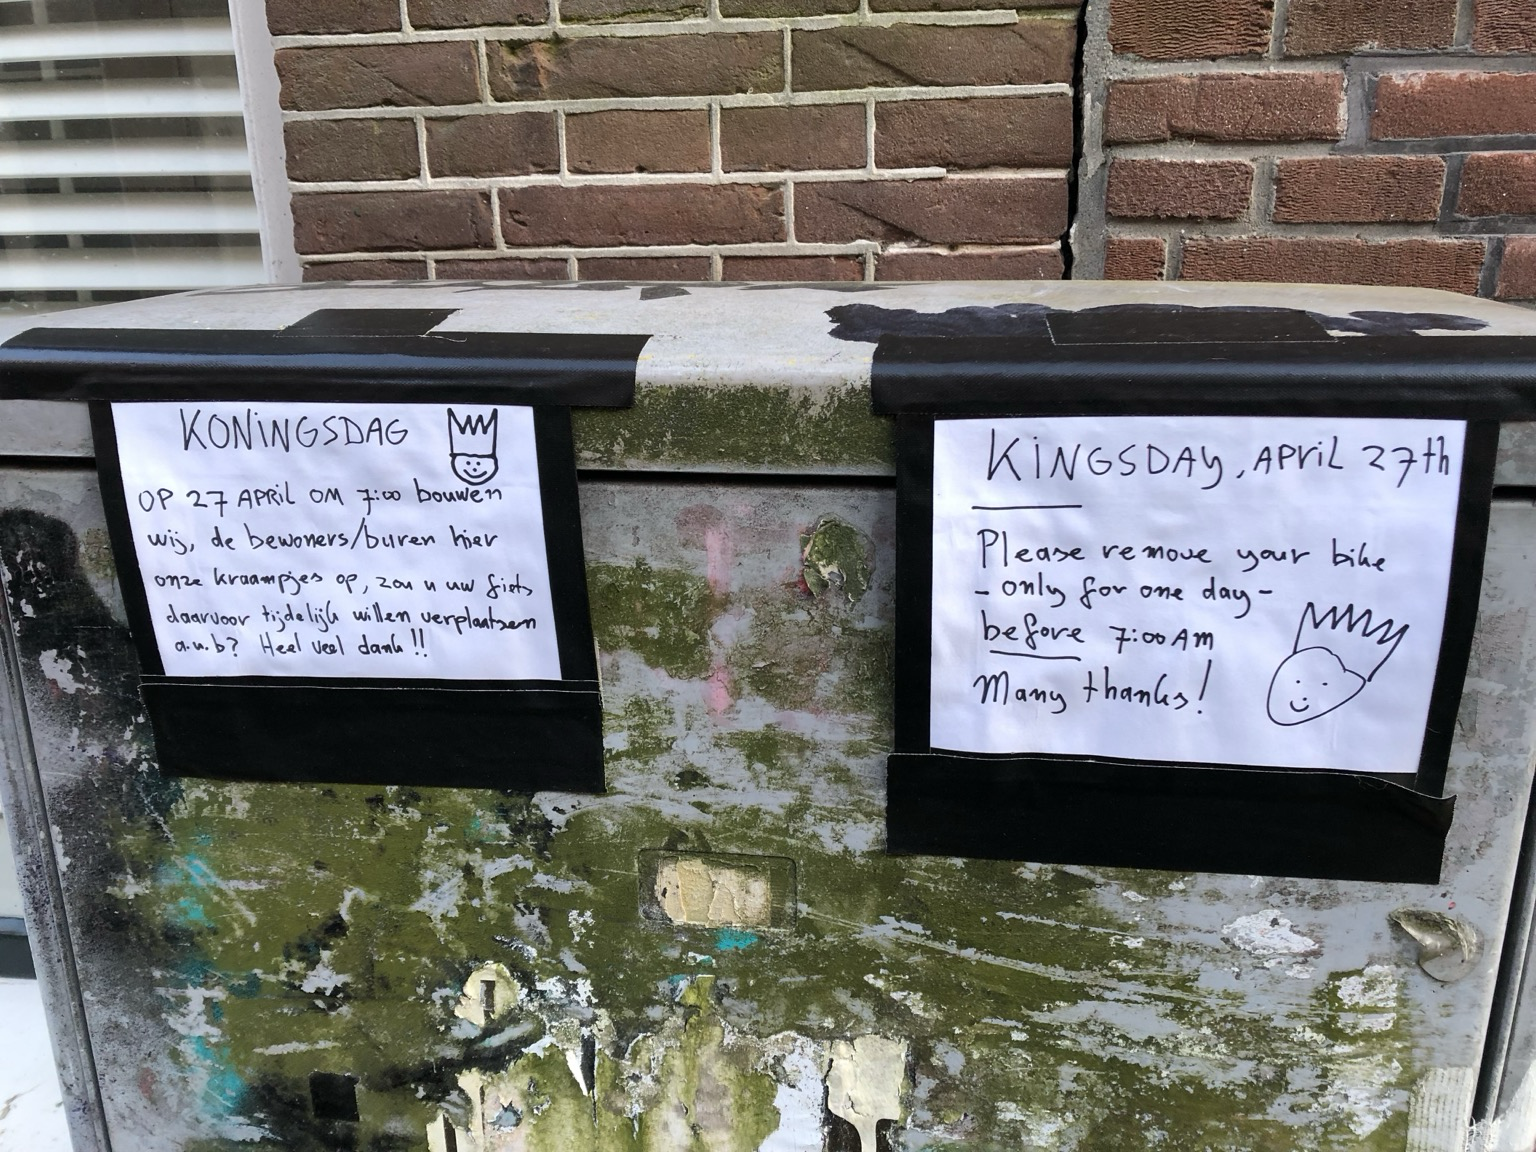 KONINGSDAG
OP 27 APRIL OM 7:00 bouwen
wij, de bewoners/buren hier
onze kraampjes op, zou u uw fiets
daarvoor tijdelijk willen verplaatsen
a.u.b? Heel veel dank!!
KINGSDAY, APRIL 27th
Please remove your bike
- only for one day -
before 7:00 AM
Many thanks!